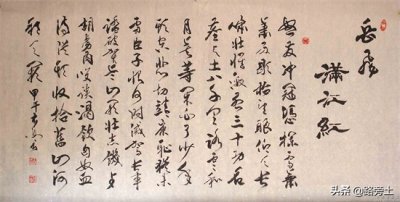 岳飛
滿江紅
怒发冲冠憑欄處瀟
瀟雨歇抬望眼仰天長
嘯壯懷激烈三十功名
塵與土八千里路雲和
月莫等閒白了少年
頭空悲切靖康恥猶未
雪臣子恨何時滅駕長車
踏破賀蘭山缺壯志飢餐
胡虜肉笑談渴飲匈奴血
待從頭收拾舊山河
朝天闕 甲午
头条 @路旁土